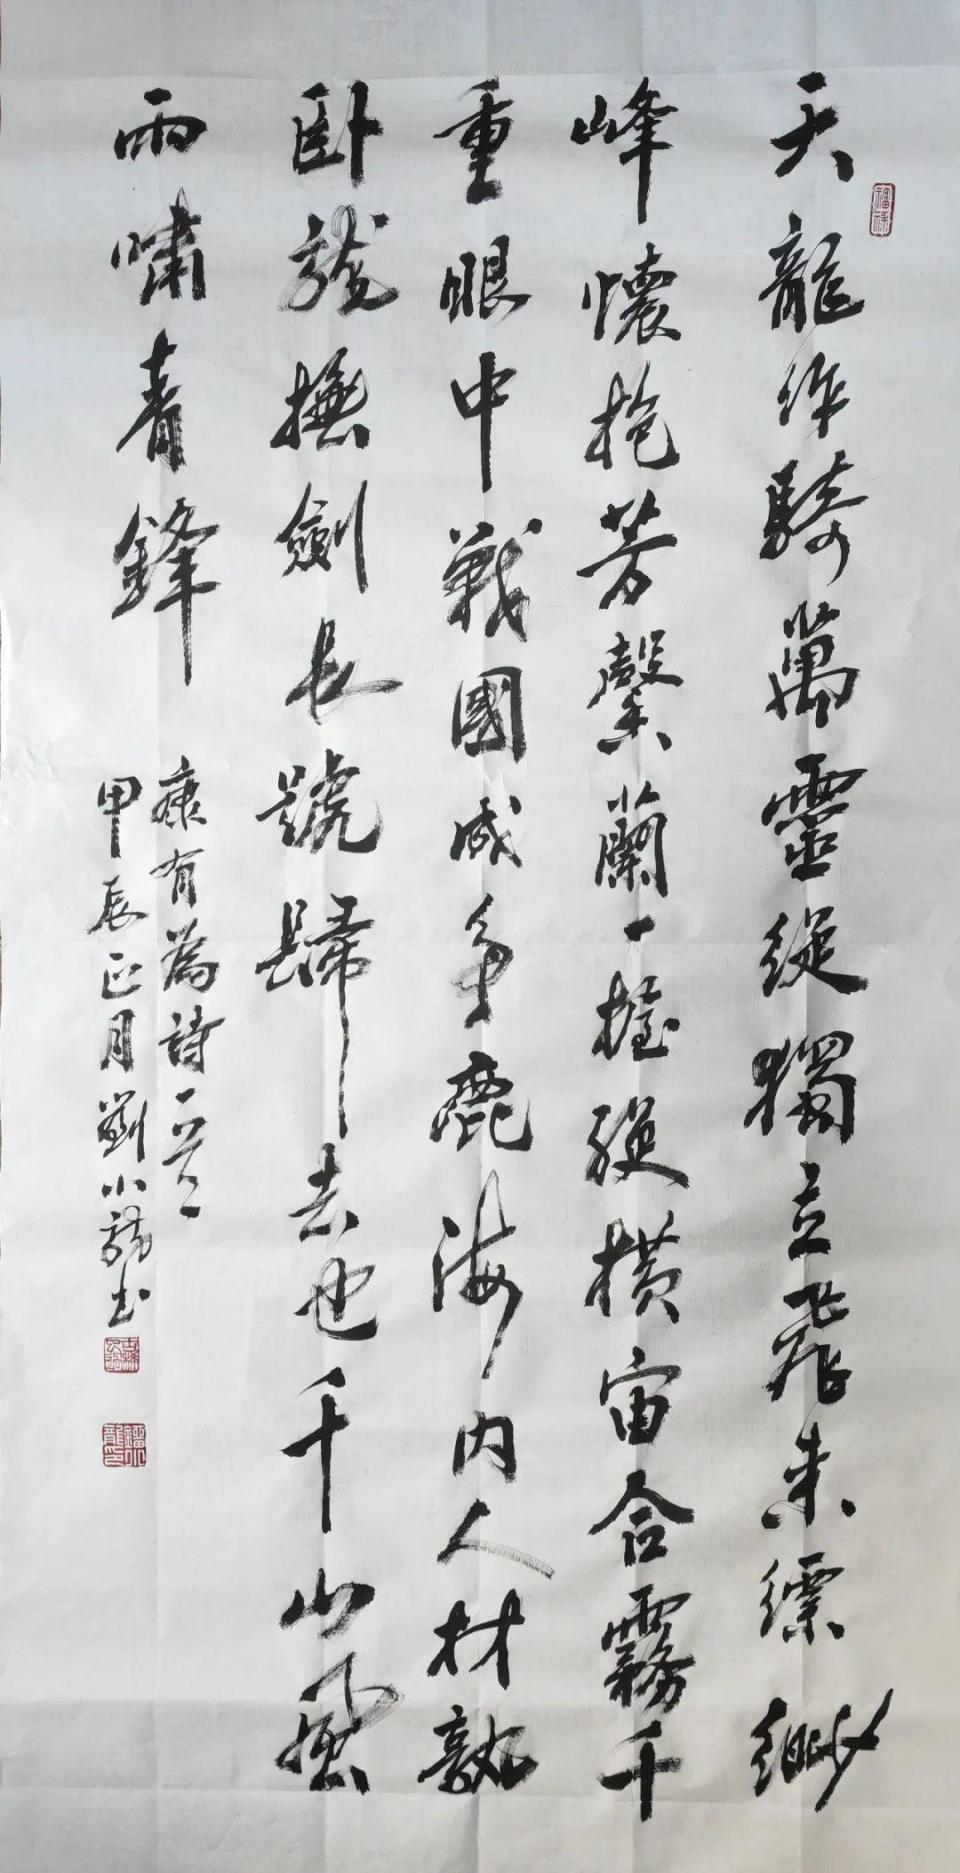 天龍作騎萬靈從獨立飛来縹緲
峰懷抱芳馨蘭一握縱橫宙合霧千
重眼中戰國成爭鹿海内人材孰
卧龍撫劍長號歸去也千山風
雨嘯青鋒
康有為詩一首
甲辰正月劉小龍書